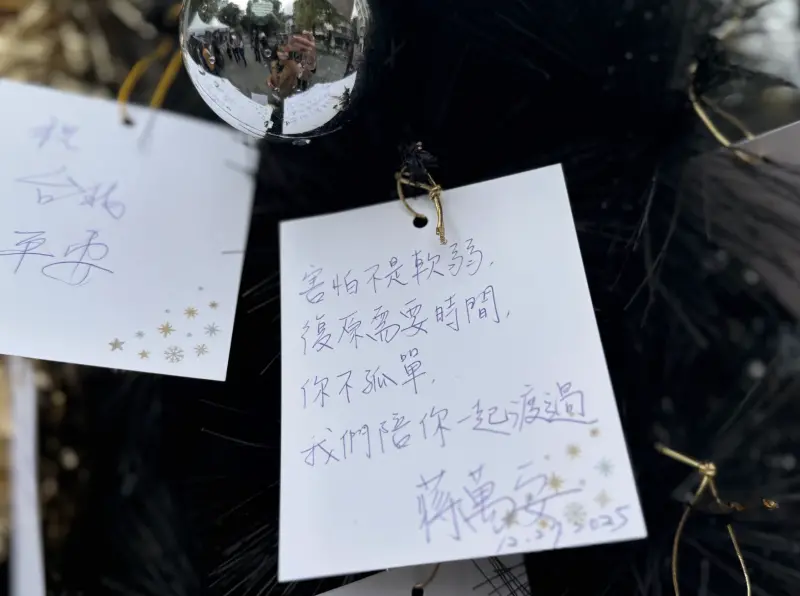 祝
台北
平安
害怕不是軟弱,
復原需要時間,
你不孤單,
我們陪你一起渡過
蔣萬安
12.27 2025